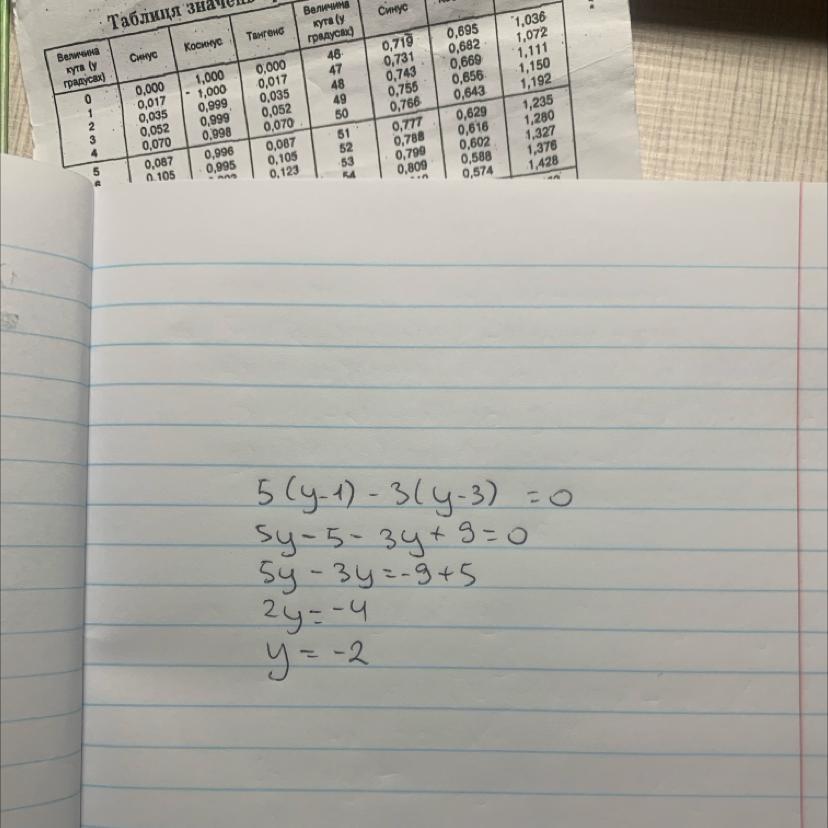 Таблиця
Величина кута (у градусах) Синус Косинус Тангенс Величина кута (у градусах) Синус
0 0,000 1,000 0,000 46 0,719 0,695 1,036
1 0,017 1,000 0,017 47 0,731 0,682 1,072
2 0,035 0,999 0,035 48 0,743 0,669 1,111
3 0,052 0,999 0,052 49 0,755 0,656 1,150
4 0,070 0,998 0,070 50 0,766 0,643 1,192
5 0,087 0,996 0,087 51 0,777 0,629 1,235
0,105 0,995 0,105 52 0,788 0,616 1,280
0,123 53 0,799 0,602 1,327
54 0,809 0,588 1,376
0,574 1,428
5(y-1) - 3(y-3) = 0
5y - 5 - 3y + 9 = 0
5y - 3y = -9 + 5
2y = -4
y = -2